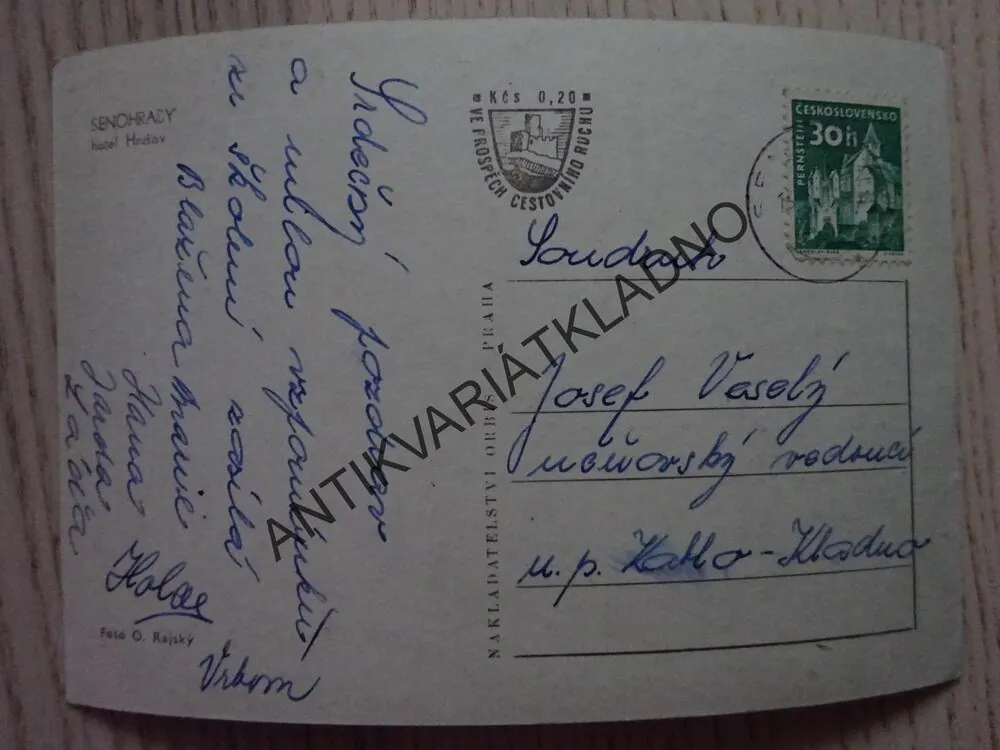 SENOHRABY
hotel Hrušov
Srdečný pozdrav
a milou vzpomínku
ze školení zasílá
Blažena
Hana
Jarda
Láďa
Holas
Vrbom
Foto O. Rajský
Kčs 0,20
VE PROSPĚCH CESTOVNÍHO RUCHU
ČESKOSLOVENSKO
30h
PERNŠTEJN
NAKLADATELSTVÍ ORBIS PRAHA
Soudruh
Josef Veselý
učňovský vedoucí
n. p. Kablo - Kladno
ANTIKVARIÁTKLADNO